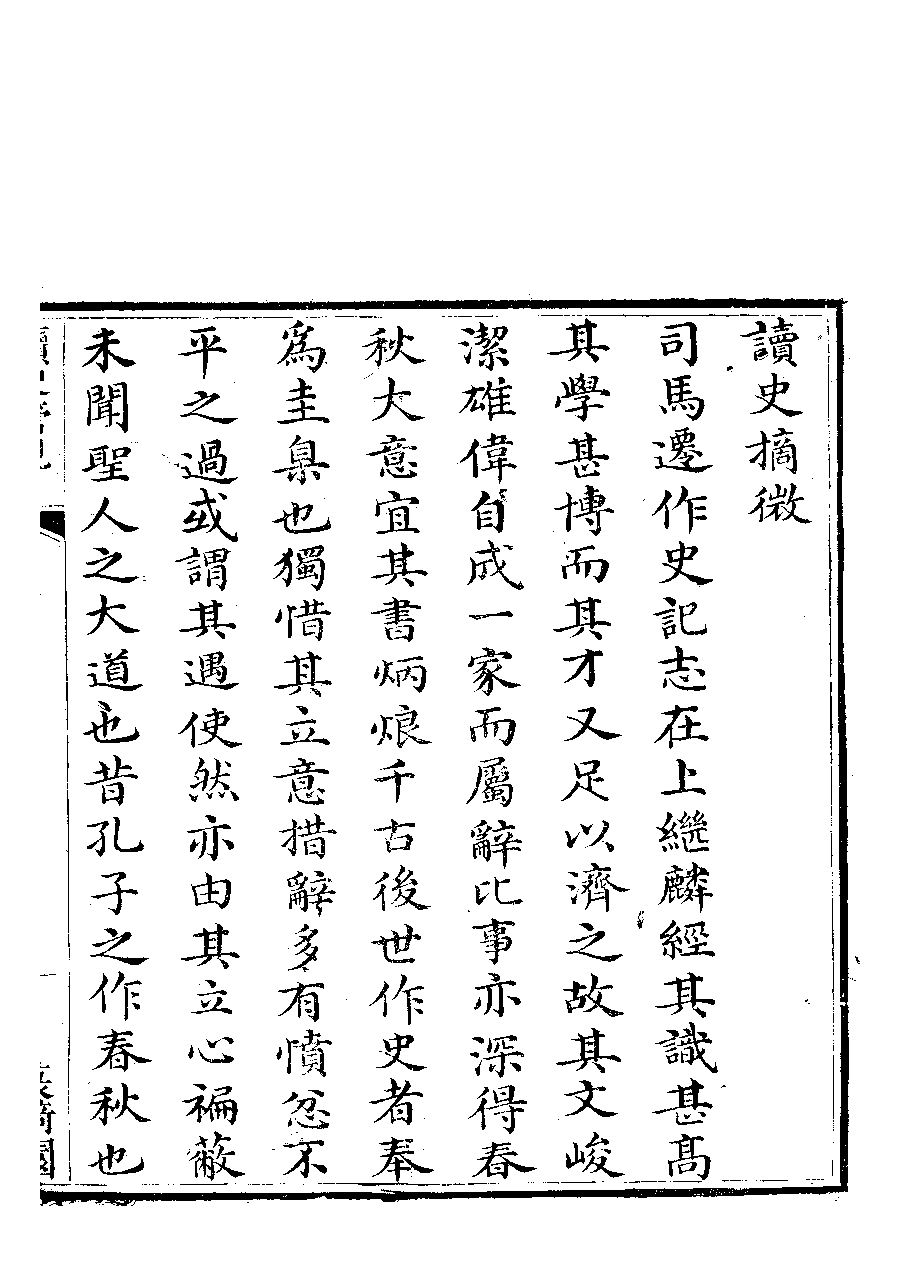 讀史摘微
司馬遷作史記志在上繼麟經其識甚髙
其學甚博而其才又足以濟之故其文峻
潔雄偉自成一家而屬辭比事亦深得春
秋大意宜其書炳烺千古後世作史者奉
爲圭臬也獨惜其立意措辭多有憤忿不
平之過或謂其遇使然亦由其立心褊蔽
未聞聖人之大道也昔孔子之作春秋也